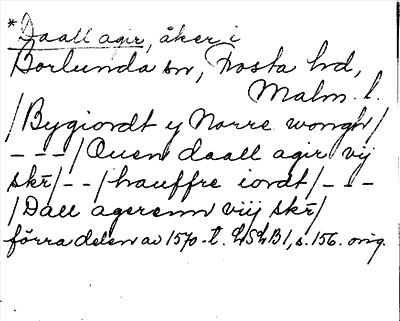 *Daall agir, åker i
Borlunda sn, Frosta hd,
Malm. l.
/Bygiordt y Norre wongh/
---/Ouen daall agir vij
skr/--/hauffre iordt/---
/Dall agerenn viij skr/
förra delen av 1570-t. LSLB1, s. 156. orig.